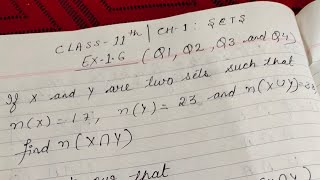 CLASS-11th | CH-1: SETS
EX-1.6 (Q1, Q2, Q3 and Q4)
If X and Y are two sets such that
n(X)=17, n(Y)=23 and n(X∪Y)=38
find n(X∩Y)
that